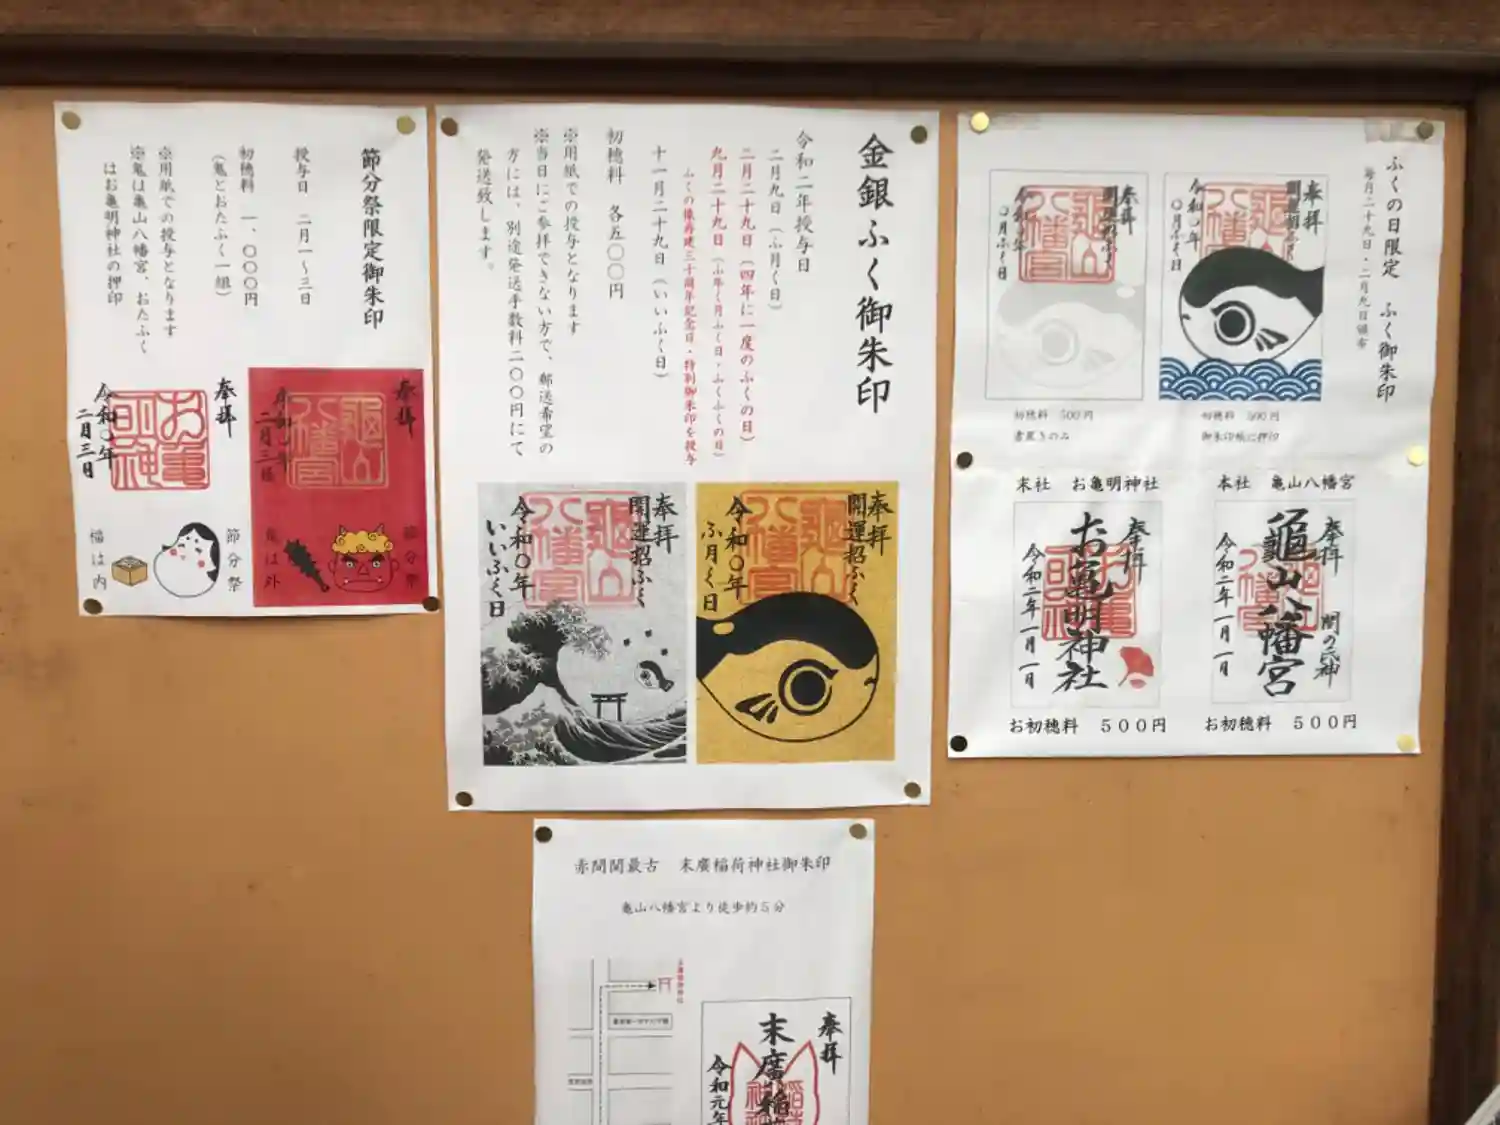 節分祭限定御朱印
授与日 二月一～三日
初穂料 一、〇〇〇円
(鬼とおたふく一組)
※用紙での授与となります
※鬼は亀山八幡宮、おたふく
はお亀明神社の押印
奉拝
亀山八幡宮
令和〇年
二月三日
節分祭
鬼は外
奉拝
お亀明神
令和〇年
二月三日
節分祭
福は内
金銀ふく御朱印
令和二年授与日
二月九日(ふ月く日)
二月二十九日(四年に一度のふくの日)
九月二十九日(ふ年く月ふく日・ふくふくの日)
ふくの像再建三十周年記念日・特別御朱印を授与
十一月二十九日(いいふく日)
初穂料 各五〇〇円
※用紙での授与となります
※当日にご参拝できない方で、郵送希望の
方には、別途発送手数料二〇〇円にて
発送致します。
奉拝
開運招ふく
亀山八幡宮
令和〇年
ふ月く日
奉拝
開運招ふく
亀山八幡宮
令和〇年
いいふく日
ふくの日限定 ふく御朱印
毎月二十九日・二月九日頒布
奉拝
開運招ふく
亀山八幡宮
令和〇年
〇月ふく日
初穂料 500円
御朱印帳に押印
奉拝
開運招ふく
亀山八幡宮
令和〇年
〇月ふく日
初穂料 500円
書置きのみ
本社 亀山八幡宮
奉拝
関の氏神
亀山八幡宮
令和二年一月一日
お初穂料 500円
末社 お亀明神社
奉拝
お亀明神社
令和二年一月一日
お初穂料 500円
赤間関最古 末廣稲荷神社御朱印
亀山八幡宮より徒歩約5分
奉拝
末廣稲
令和元年